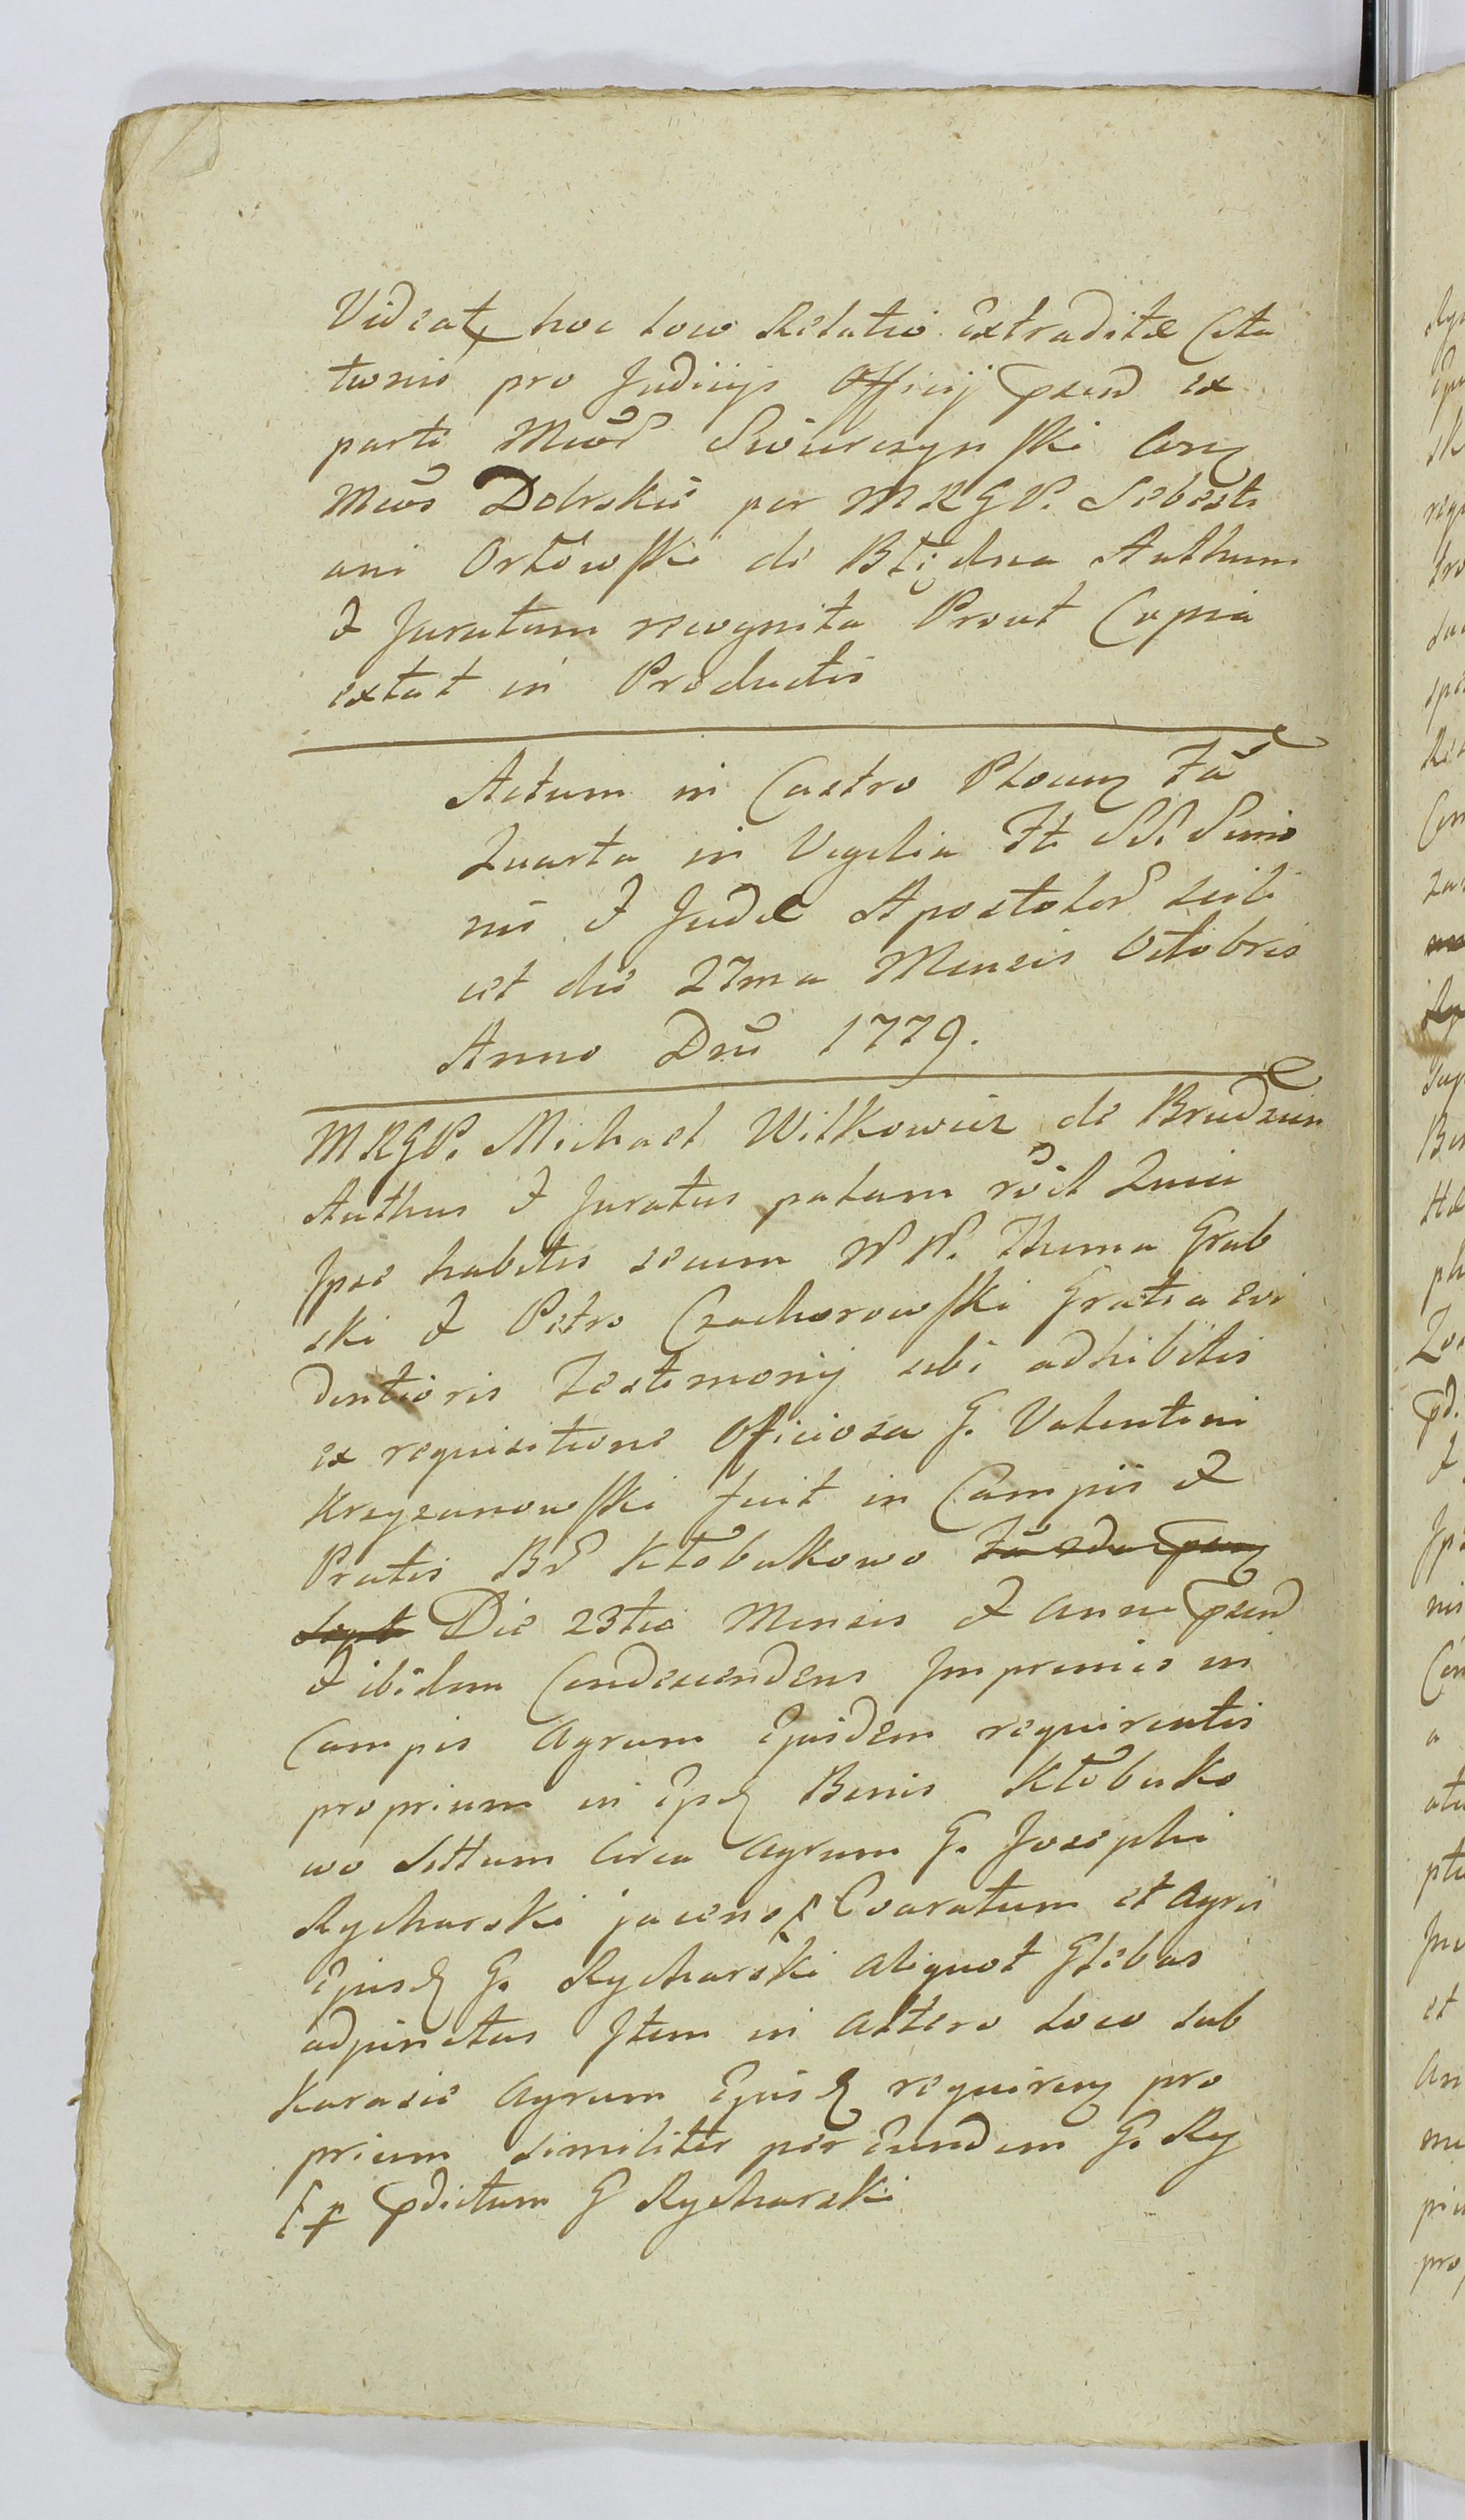 Videat hoc loco Relatio Extraditæ Cita
tionis pro Judicijs Officij pñd ex
parte Mcōr Swierczynski Con
Mcos Dobrskie per MRGP. Sebesti
ani Orłowski de Błędna Authum
& Juratum recognita Prout Copia
extat in Productis
Actum in Castro Plocen Fā
Quarta in Vigilia Fti SS. Simo
nis & Judæ Apostolor scili
cet die 27ma Mensis Octobris
Anno Dnī 1779.
MRGP. Michael Witkowicz de Brudzen
Authus & Juratus palam rōit Quia
Ipse habitis secum NN. Thoma Grab
ski & Petro Czachorowski Gratia evi
dentioris Testimonij sibi adhibitis
ex requisitione Officiosa G. Valentini
Krzyzanowski fuit in Campis &
Pratis Br Kłobukowo
Die 23tia Mensis & Anni pñd
& ibidem Condescendens Imprimis in
Campis Agrum Ejusdem requirentis
proprium in Ejusd Bonis Kłobuko
wo Sittum Circa Agrum G. Josephi
Rycharski jacens Exaratum et Agri
Ejusd G. Rycharski Aliquot Glebas
adjunctas Item in Altero Loco sub
Karasie Agrum Ejusd requiren pro
prium similiter per Eundem G. Ry
pdictum G Rycharski